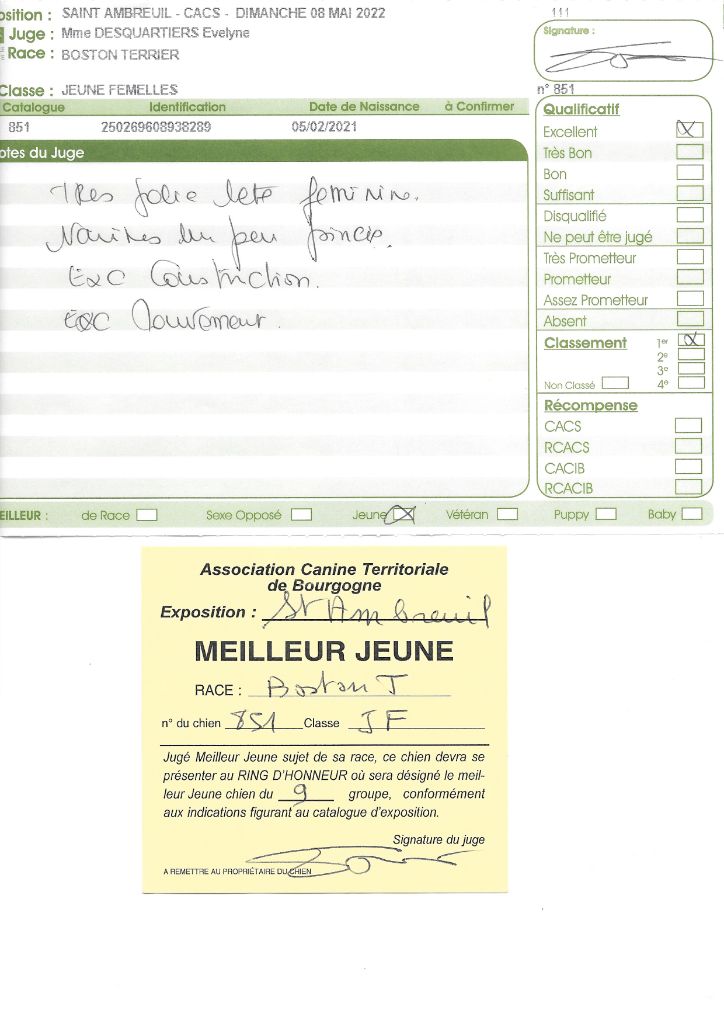 osition : SAINT AMBREUIL - CACS - DIMANCHE 08 MAI 2022 111
Juge : Mme DESQUARTIERS Evelyne
Signature :
Race : BOSTON TERRIER
Classe : JEUNE FEMELLES
n° 851
Catalogue Identification Date de Naissance à Confirmer
851 250269608938289 05/02/2021
otes du Juge
Tres jolie tete feminine.
Narines un peu pincés.
Exc Construction.
Exc Mouvement.
Qualificatif
Excellent X
Très Bon
Bon
Suffisant
Disqualifié
Ne peut être jugé
Très Prometteur
Prometteur
Assez Prometteur
Absent
Classement 1er X
2e
3e
Non Classé 4e
Récompense
CACS
RCACS
CACIB
RCACIB
EILLEUR : de Race Sexe Opposé Jeune X Vétéran Puppy Baby
Association Canine Territoriale
de Bourgogne
Exposition : St Ambreuil
MEILLEUR JEUNE
RACE : Boston T
n° du chien 851 Classe JF
Jugé Meilleur Jeune sujet de sa race, ce chien devra se
présenter au RING D'HONNEUR où sera désigné le meil-
leur Jeune chien du 9 groupe, conformément
aux indications figurant au catalogue d'exposition.
Signature du juge
A REMETTRE AU PROPRIÉTAIRE DU CHIEN